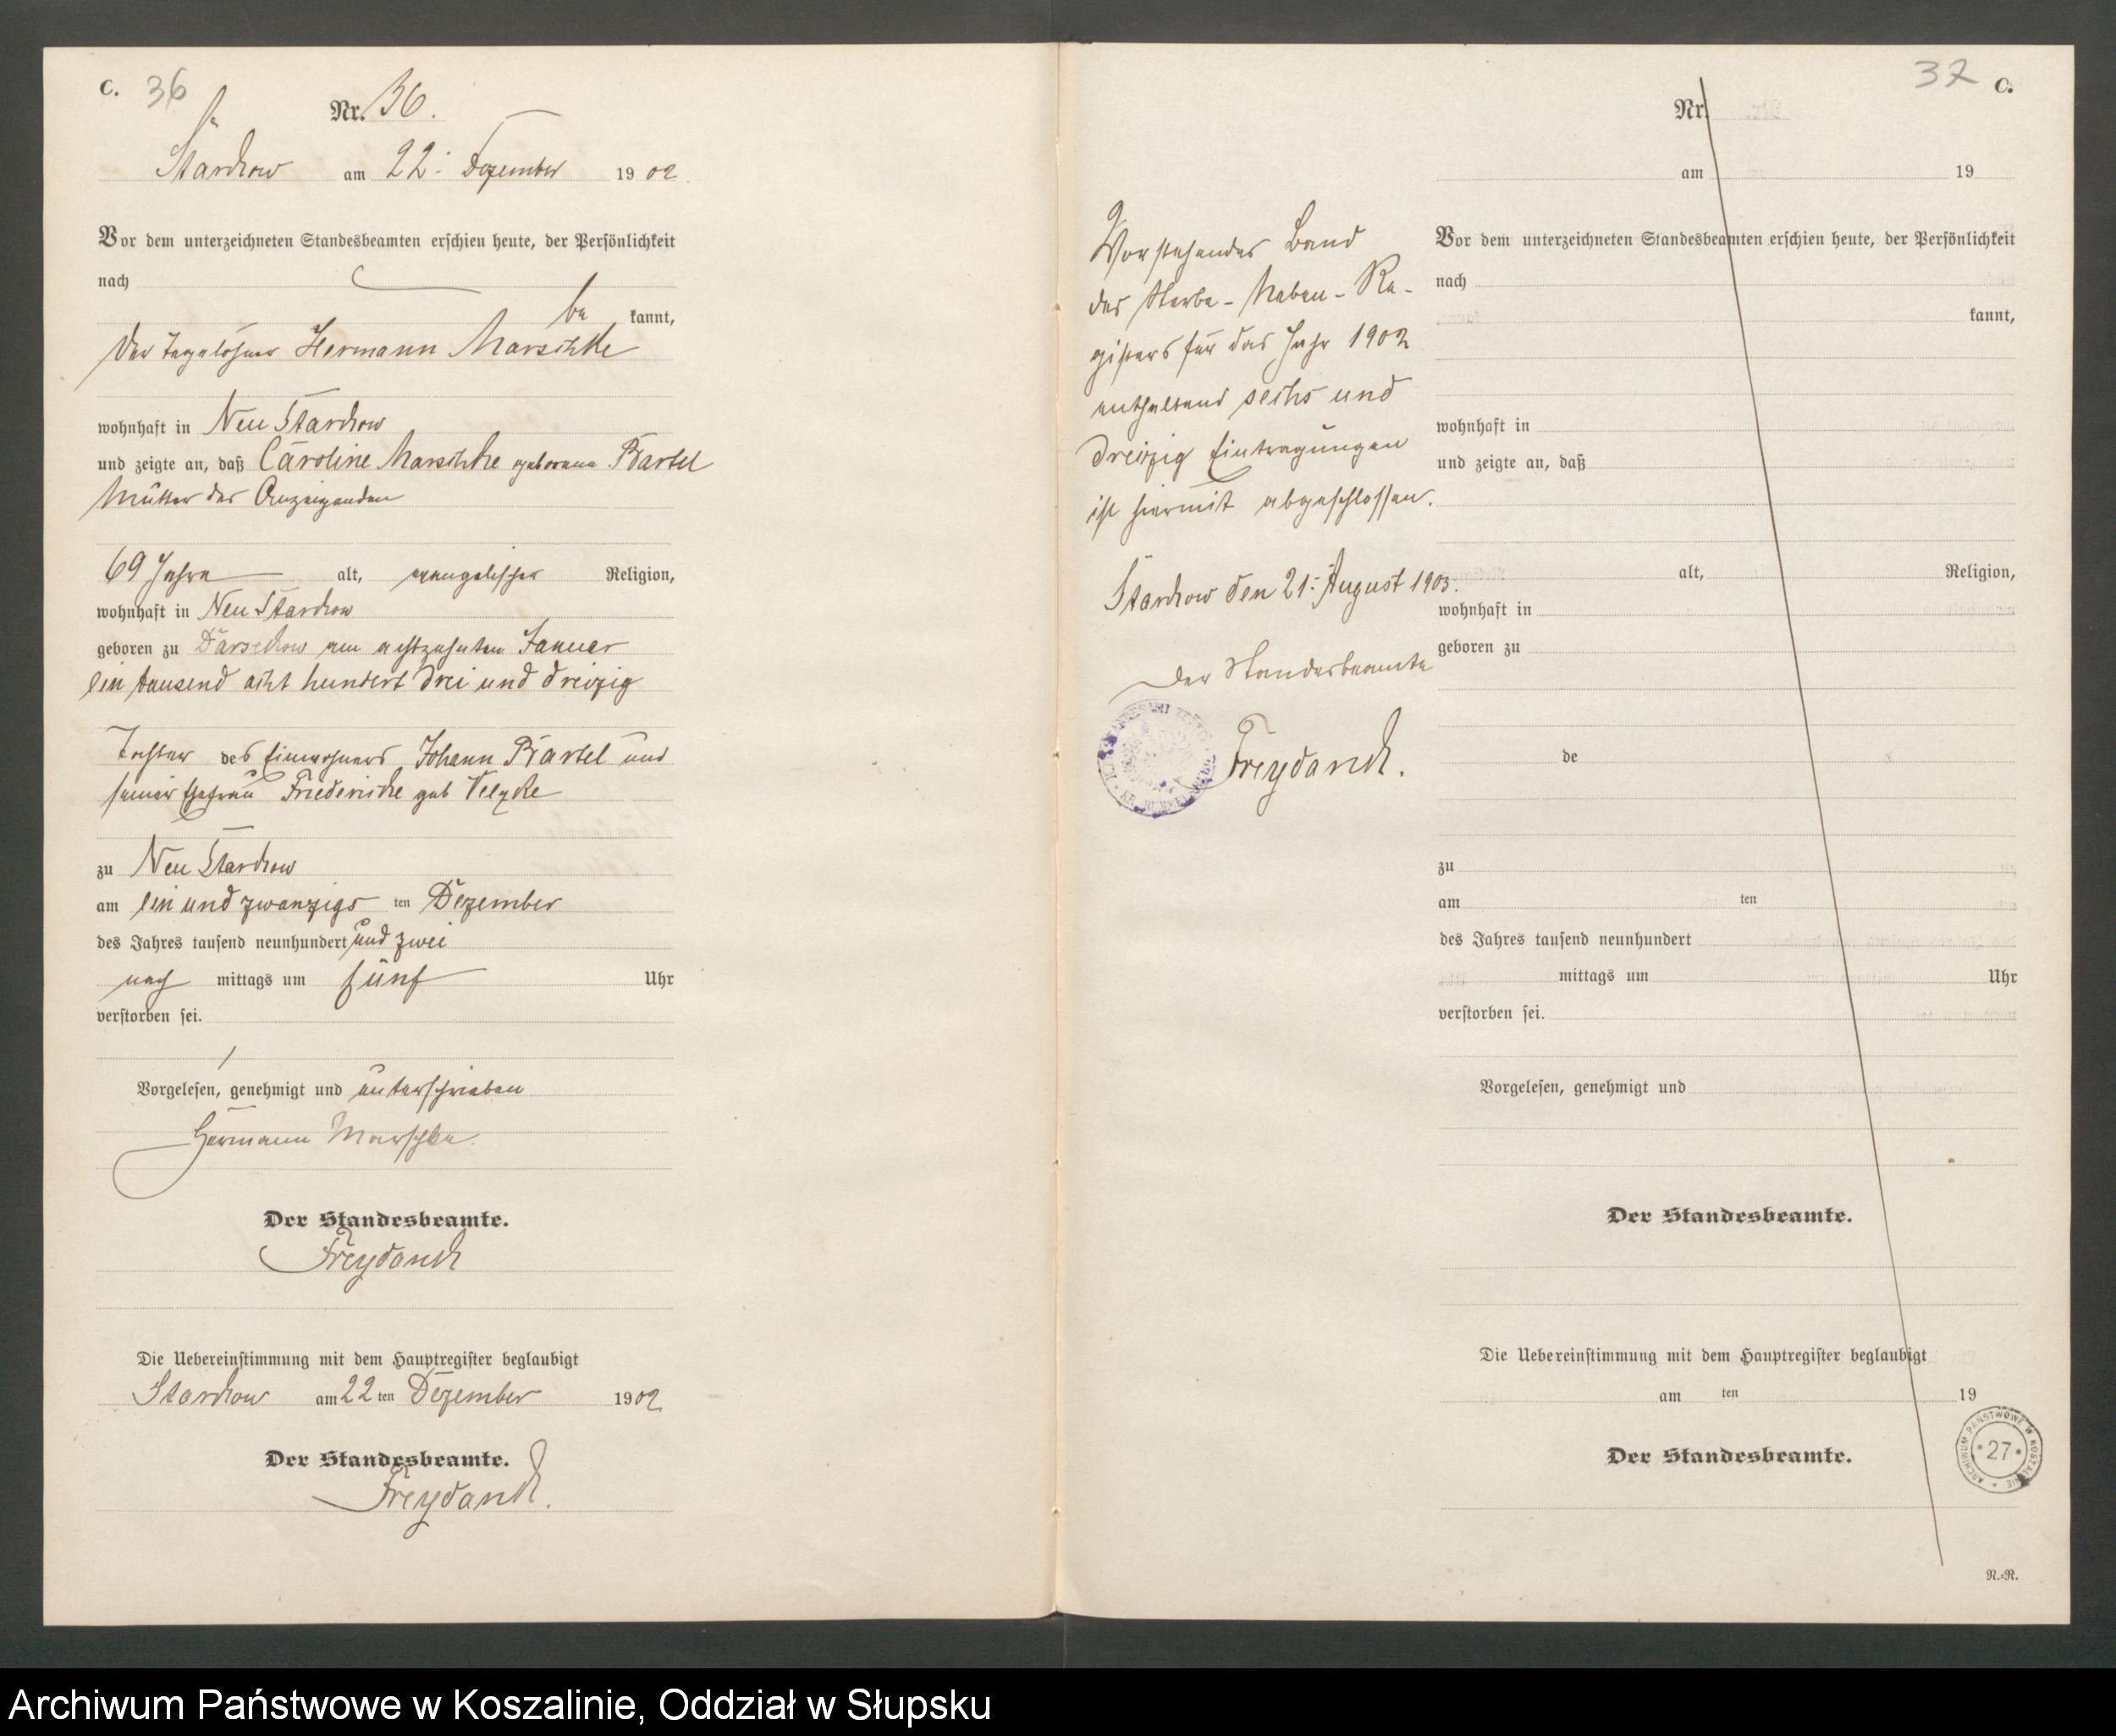 C. 36
Nr. 36.
Starckow am 22. Dezember 1902
Vor dem unterzeichneten Standesbeamten erschien heute, der Persönlichkeit
nach
be kannt,
der Tagelöhner Hermann Marschke
wohnhaft in Neu Starckow
und zeigte an, daß Caroline Marschke geborene Bartel
Mutter des Anzeigenden
69 Jahre alt, evangelischer Religion,
wohnhaft in Neu Starckow
geboren zu Darsekow am achtzehnten Januar
ein tausend acht hundert drei und dreizig
Tochter des Einwohners Johann Bartel und
seiner Ehefrau Friedericke geb
zu Neu Starckow
am ein und zwanzigs ten Dezember
des Jahres tausend neunhundert und zwei
nach mittags um fünf Uhr
verstorben sei.
Vorgelesen, genehmigt und unterschrieben
Hermann Marschke.
Der Standesbeamte.
Freydanck
Die Uebereinstimmung mit dem Hauptregister beglaubigt
Starckow am 22 ten Dezember 1902
Der Standesbeamte.
Freydanck.
Vorstehender Band
des Sterbe-Neben-Re-
gisters für das Jahr 1902
enthaltend sechs und
dreizig Eintragungen
ist hiermit abgeschlossen.
Starckow den 21. August 1903.
Der Standesbeamte
Freydanck.
37 C.
Nr.
am 19
Vor dem unterzeichneten Standesbeamten erschien heute, der Persönlichkeit
nach
kannt,
wohnhaft in
und zeigte an, daß
alt, Religion,
wohnhaft in
geboren zu
de
zu
am ten
des Jahres tausend neunhundert
mittags um Uhr
verstorben sei.
Vorgelesen, genehmigt und
Der Standesbeamte.
Die Uebereinstimmung mit dem Hauptregister beglaubigt
am ten 19
Der Standesbeamte.
ARCHIWUM PAŃSTWOWE W KOSZALINIE
*27*
N.=R.
Archiwum Państwowe w Koszalinie, Oddział w Słupsku